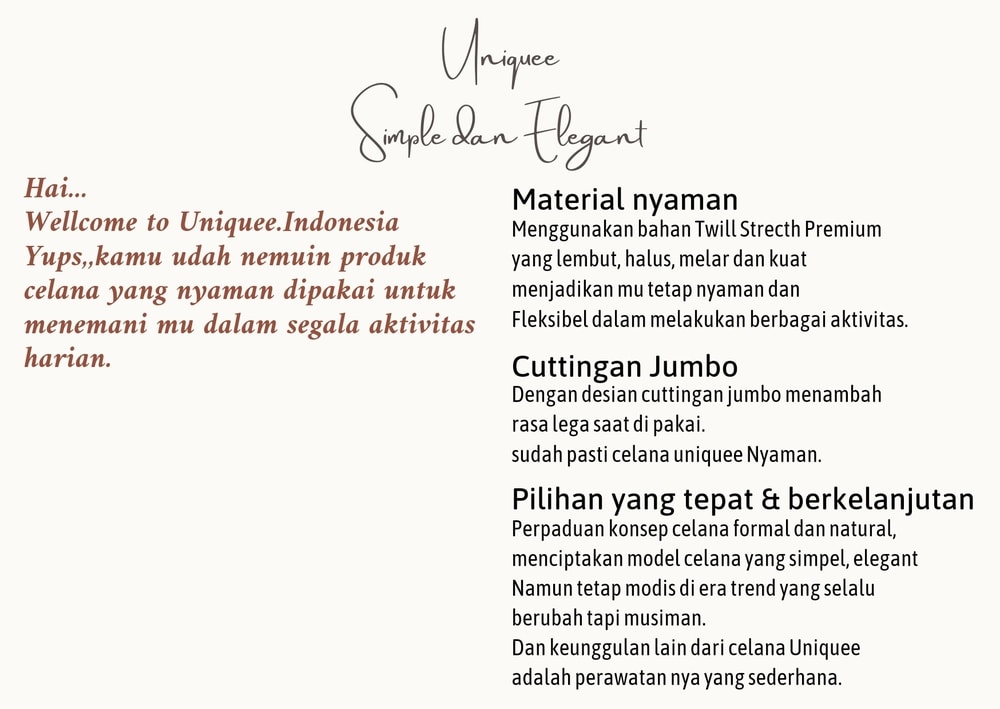 Uniquee
Simple dan Elegant
Hai...
Wellcome to Uniquee.Indonesia
Yups,,kamu udah nemuin produk
celana yang nyaman dipakai untuk
menemani mu dalam segala aktivitas
harian.
Material nyaman
Menggunakan bahan Twill Strecth Premium
yang lembut, halus, melar dan kuat
menjadikan mu tetap nyaman dan
Fleksibel dalam melakukan berbagai aktivitas.
Cuttingan Jumbo
Dengan desian cuttingan jumbo menambah
rasa lega saat di pakai.
sudah pasti celana uniquee Nyaman.
Pilihan yang tepat & berkelanjutan
Perpaduan konsep celana formal dan natural,
menciptakan model celana yang simpel, elegant
Namun tetap modis di era trend yang selalu
berubah tapi musiman.
Dan keunggulan lain dari celana Uniquee
adalah perawatan nya yang sederhana.